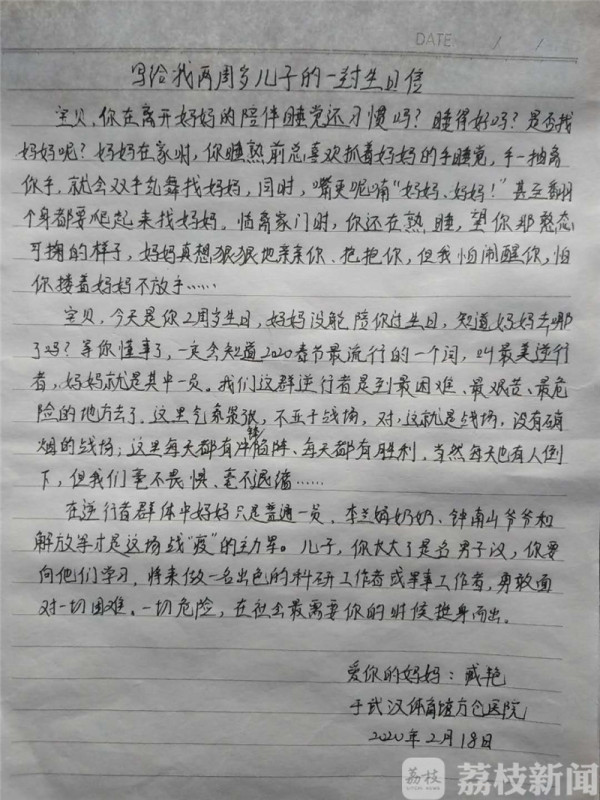 DATE / /
写给我两周岁儿子的一封生日信
宝贝，你在离开妈妈的陪伴睡觉还习惯吗？睡得好吗？是否找
妈妈呢？妈妈在家时，你睡熟前总喜欢抓着妈妈的手睡觉，手一抽离
你手，就会双手乱舞找妈妈，同时，嘴里呢喃“妈妈、妈妈！”甚至翻
个身都要爬起来找妈妈。临离家门时，你还在熟睡，望你那憨态
可掬的样子，妈妈真想狠狠地亲亲你、抱抱你，但我怕闹醒你，怕
你搂着妈妈不放手……
宝贝，今天是你2周岁生日，妈妈没能陪你过生日，知道妈妈去哪
了吗？等你懂事了，一定会知道2020春节最流行的一个词，叫最美逆行
者，妈妈就是其中一员。我们这群逆行者是到最困难、最艰苦、最危
险的地方去了，这里气氛紧张，不亚于战场，对，这就是战场，没有硝
烟的战场；这里每天都有冲锋陷阵、每天都有胜利，当然每天也有人倒
下，但我们毫不畏惧、毫不退缩……
在逆行者群体中妈妈只是普通一员，李兰娟奶奶、钟南山爷爷和
解放军才是这场战“疫”的主力军。儿子，你长大了是名男子汉，你要
向他们学习，将来做一名出色的科研工作者或军事工作者，勇敢面
对一切困难、一切危险，在社会最需要你的时候挺身而出。
爱你的妈妈：臧艳
于武汉体育馆方仓医院
2020年2月18日
荔枝 荔枝新闻